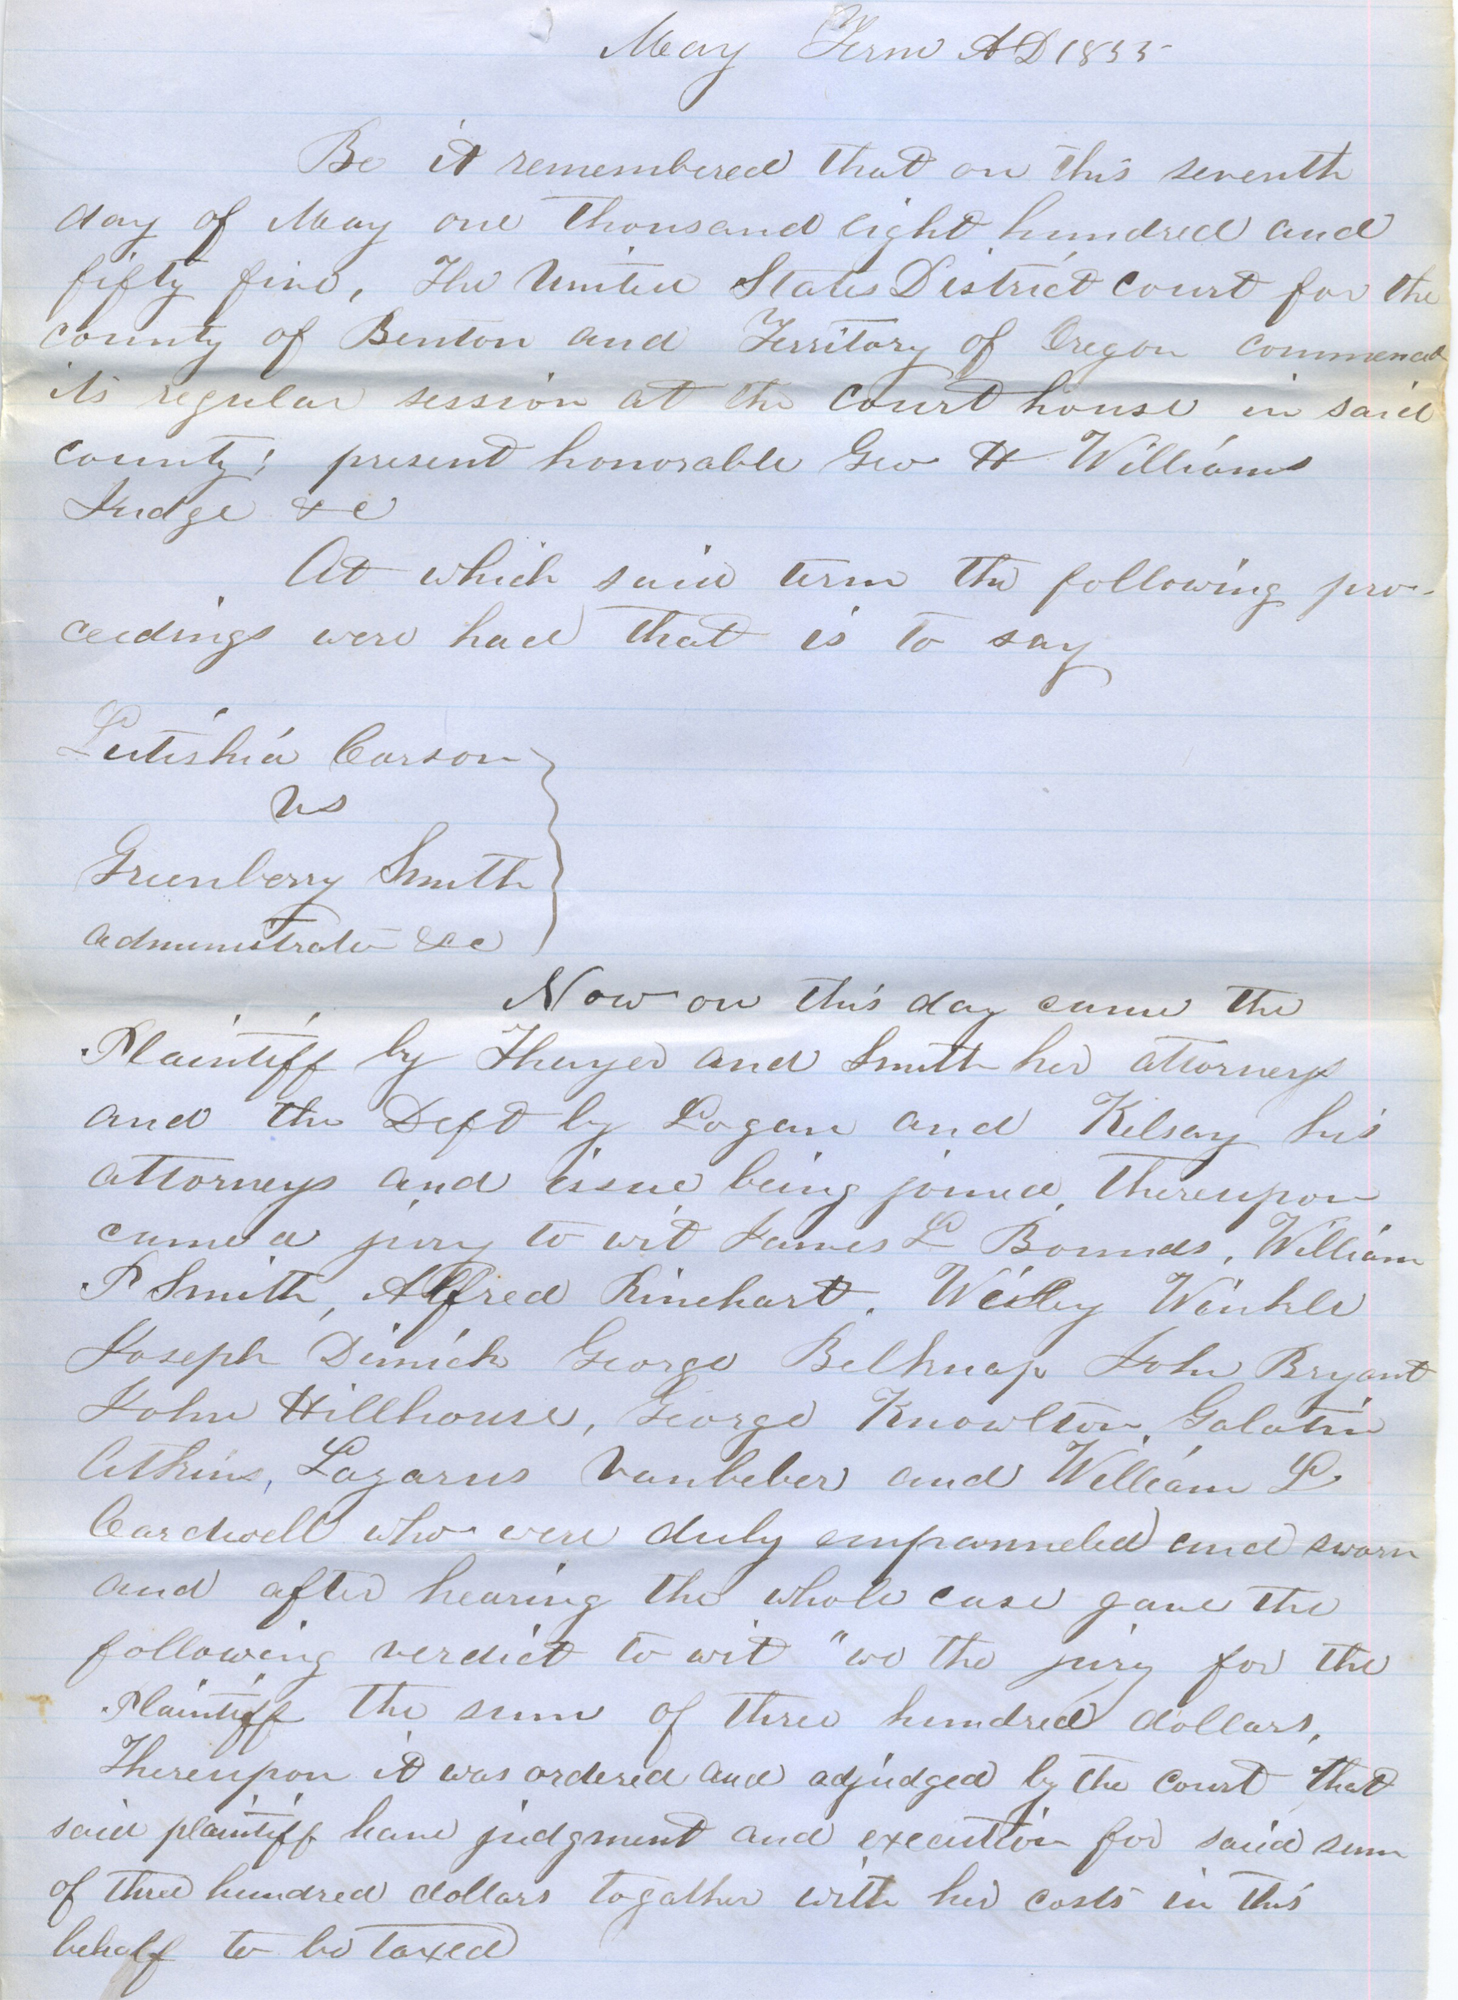 May Term AD 1855
Be it remembered that on this seventh
day of May one thousand eight hundred and
fifty five, The United States District Court for the
county of Benton and Territory of Oregon commenced
its regular session at the court house in said
county; present honorable Geo H Williams
Judge &c
At which said term the following pro-
ceedings were had that is to say
Lutishia Carson
vs
Greenberry Smith
administrator &c
Now on this day came the
Plaintiff by Thayer and Smith her attorneys
and the Deft by Logan and Kelsay his
attorneys and issue being joined, Thereupon
came a jury to wit James L Bounds, William
P Smith, Alfred Rinehart, Wesley Winkle
Joseph Dimick George Belknap John Bryant
John Hillhouse, George Knowlton, Galatin
Atkins, Lazarus Vanbeber and William L
Cardwell who were duly empanneled and sworn
and after hearing the whole case gave the
following verdict to wit "we the jury for the
Plaintiff the sum of three hundred dollars,
Thereupon it was ordered and adjudged by the court that
said plaintiff have judgment and execution for said sum
of three hundred dollars together with her costs in this
behalf to be taxed